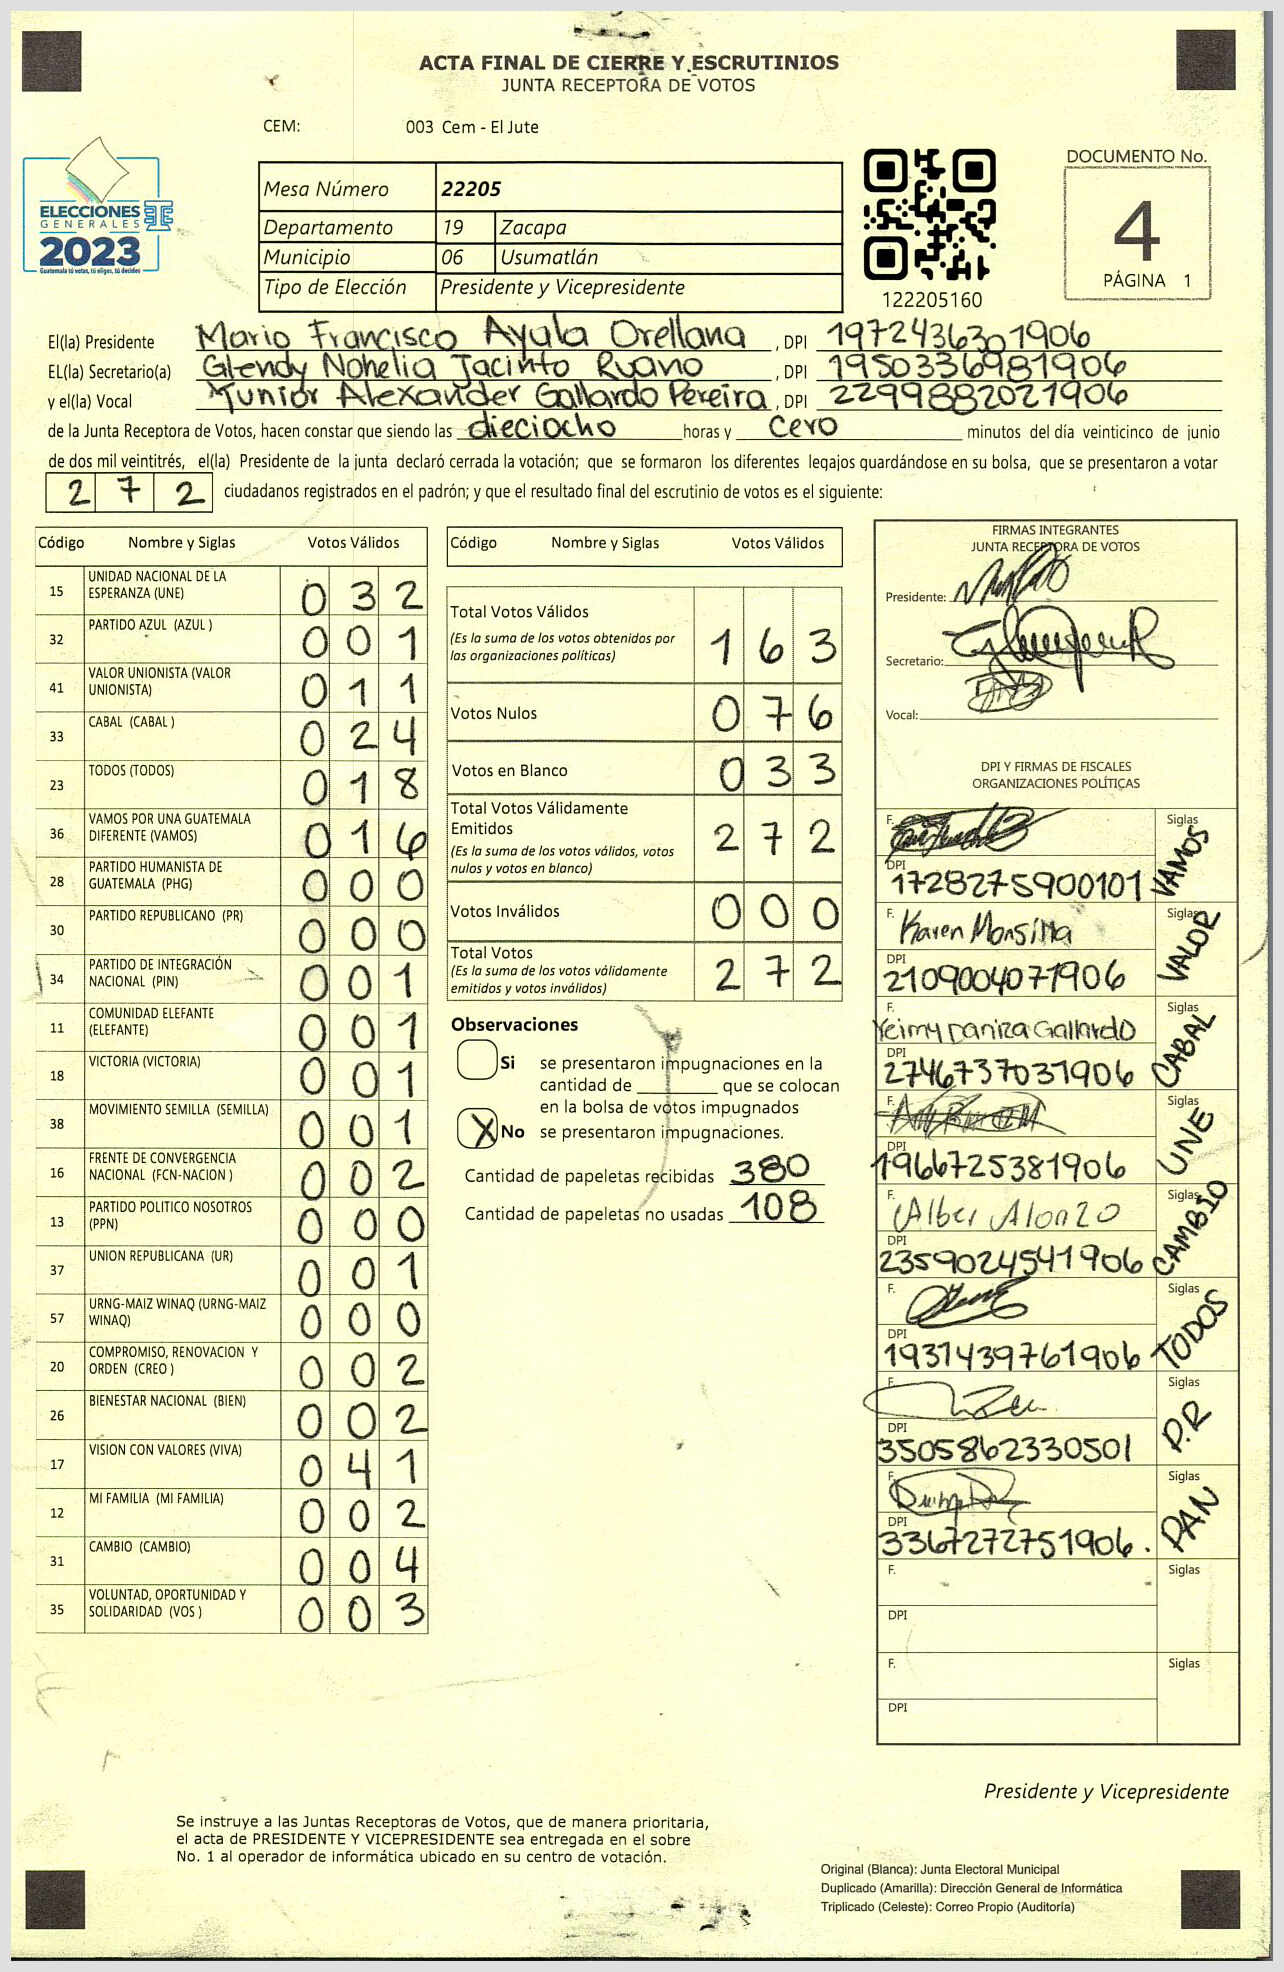 ACTA FINAL DE CIERRE Y ESCRUTINIOS
JUNTA RECEPTORA DE VOTOS
CEM: 003 Cem - El Jute
ELECCIONES
GENERALES
2023
Guatemala tú votas, tú eliges, tú decides
Mesa Número 22205
Departamento 19 Zacapa
Municipio 06 Usumatlán
Tipo de Elección Presidente y Vicepresidente
122205160
DOCUMENTO No.
4
PÁGINA 1
El(la) Presidente Mario Francisco Ayala Orellana, DPI 1972436301906
EL(la) Secretario(a) Glendy Nohelia Jacinto Ruano, DPI 1950336981906
y el(la) Vocal Junior Alexander Gallardo Pereira, DPI 2299882021906
de la Junta Receptora de Votos, hacen constar que siendo las dieciocho horas y cero minutos del día veinticinco de junio
de dos mil veintitrés, el(la) Presidente de la junta declaró cerrada la votación; que se formaron los diferentes legajos guardándose en su bolsa, que se presentaron a votar
272 ciudadanos registrados en el padrón; y que el resultado final del escrutinio de votos es el siguiente:
Código Nombre y Siglas Votos Válidos
15 UNIDAD NACIONAL DE LA ESPERANZA (UNE) 032
32 PARTIDO AZUL (AZUL ) 001
41 VALOR UNIONISTA (VALOR UNIONISTA) 011
33 CABAL (CABAL ) 024
23 TODOS (TODOS) 018
36 VAMOS POR UNA GUATEMALA DIFERENTE (VAMOS) 016
28 PARTIDO HUMANISTA DE GUATEMALA (PHG) 000
30 PARTIDO REPUBLICANO (PR) 000
34 PARTIDO DE INTEGRACIÓN NACIONAL (PIN) 001
11 COMUNIDAD ELEFANTE (ELEFANTE) 001
18 VICTORIA (VICTORIA) 001
38 MOVIMIENTO SEMILLA (SEMILLA) 001
16 FRENTE DE CONVERGENCIA NACIONAL (FCN-NACION ) 002
13 PARTIDO POLITICO NOSOTROS (PPN) 000
37 UNION REPUBLICANA (UR) 001
57 URNG-MAIZ WINAQ (URNG-MAIZ WINAQ) 000
20 COMPROMISO, RENOVACION Y ORDEN (CREO ) 002
26 BIENESTAR NACIONAL (BIEN) 002
17 VISION CON VALORES (VIVA) 041
12 MI FAMILIA (MI FAMILIA) 002
31 CAMBIO (CAMBIO) 004
35 VOLUNTAD, OPORTUNIDAD Y SOLIDARIDAD (VOS ) 003
Código Nombre y Siglas Votos Válidos
Total Votos Válidos 163
(Es la suma de los votos obtenidos por
las organizaciones políticas)
Votos Nulos 076
Votos en Blanco 033
Total Votos Válidamente
Emitidos 272
(Es la suma de los votos válidos, votos
nulos y votos en blanco)
Votos Inválidos 000
Total Votos 272
(Es la suma de los votos válidamente
emitidos y votos inválidos)
Observaciones
Si se presentaron impugnaciones en la
cantidad de ________ que se colocan
en la bolsa de votos impugnados
X No se presentaron impugnaciones.
Cantidad de papeletas recibidas 380
Cantidad de papeletas no usadas 108
FIRMAS INTEGRANTES
JUNTA RECEPTORA DE VOTOS
Presidente:
Secretario:
Vocal:
DPI Y FIRMAS DE FISCALES
ORGANIZACIONES POLÍTICAS
F. Siglas VAMOS
DPI 1728275900101
F. Karen Monsilla Siglas VALOR
DPI 2109004071906
F. Yeimy Daniza Gallardo Siglas CABAL
DPI 2746737031906
F. Siglas UNE
DPI 1966725381906
F. Alber Alonzo Siglas CAMBIO
DPI 2359024541906
F. Siglas TODOS
DPI 1931439761906
F. Siglas P.R
DPI 3505862330501
F. Siglas PAN
DPI 3367272751906.
F. Siglas
DPI
F. Siglas
DPI
Presidente y Vicepresidente
Se instruye a las Juntas Receptoras de Votos, que de manera prioritaria,
el acta de PRESIDENTE Y VICEPRESIDENTE sea entregada en el sobre
No. 1 al operador de informática ubicado en su centro de votación.
Original (Blanca): Junta Electoral Municipal
Duplicado (Amarilla): Dirección General de Informática
Triplicado (Celeste): Correo Propio (Auditoría)